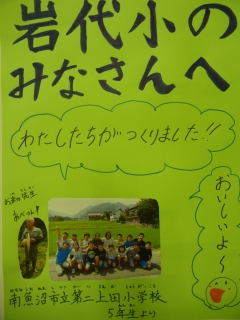 岩代小の
みなさんへ
わたしたちがつくりました!!
おいしいよ〜
南魚沼市立第二上田小学校
5年生より